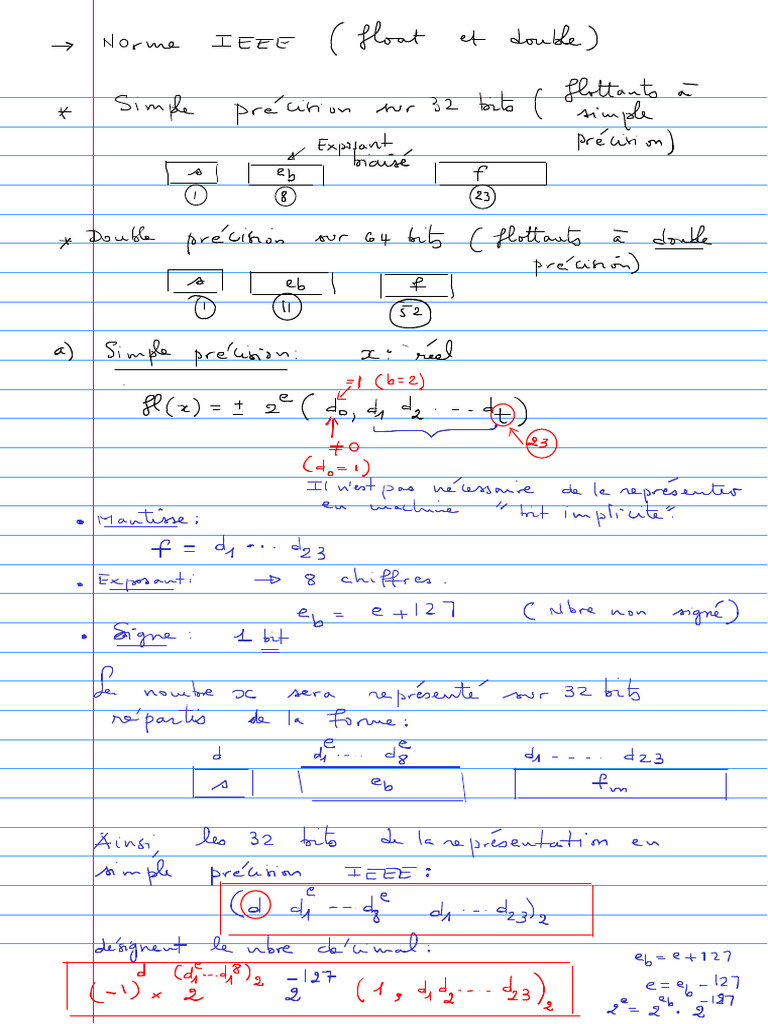 → Norme IEEE (float et double)
* Simple précision sur 32 bits (flottants à simple précision)
Exposant biaisé
s eb f
1 8 23
* Double précision sur 64 bits (flottants à double précision)
s eb f
1 11 52
a) Simple précision: x: réel
=1 (b=2)
fl(x) = ± 2^e (d0, d1 d2 ... dt)
≠0 23
(d0=1)
Il n'est pas nécessaire de le représenter
en machine "bit implicite".
• Mantisse:
f = d1 ... d23
• Exposant: → 8 chiffres.
eb = e+127 (Nbre non signé)
• Signe: 1 bit
Le nombre x sera représenté sur 32 bits
répartis de la forme:
d d1^e ... d8^e d1 ---- d23
s eb fm
Ainsi, les 32 bits de la représentation en
simple précision IEEE:
(d d1^e -- d8^e d1 ... d23)2
désignent le nbre décimal:
(-1)^d × 2^(d1^e ... d1^8)2 2^-127 (1, d1 d2 ---- d23)2
eb = e+127
e = eb - 127
2^e = 2^eb . 2^-127